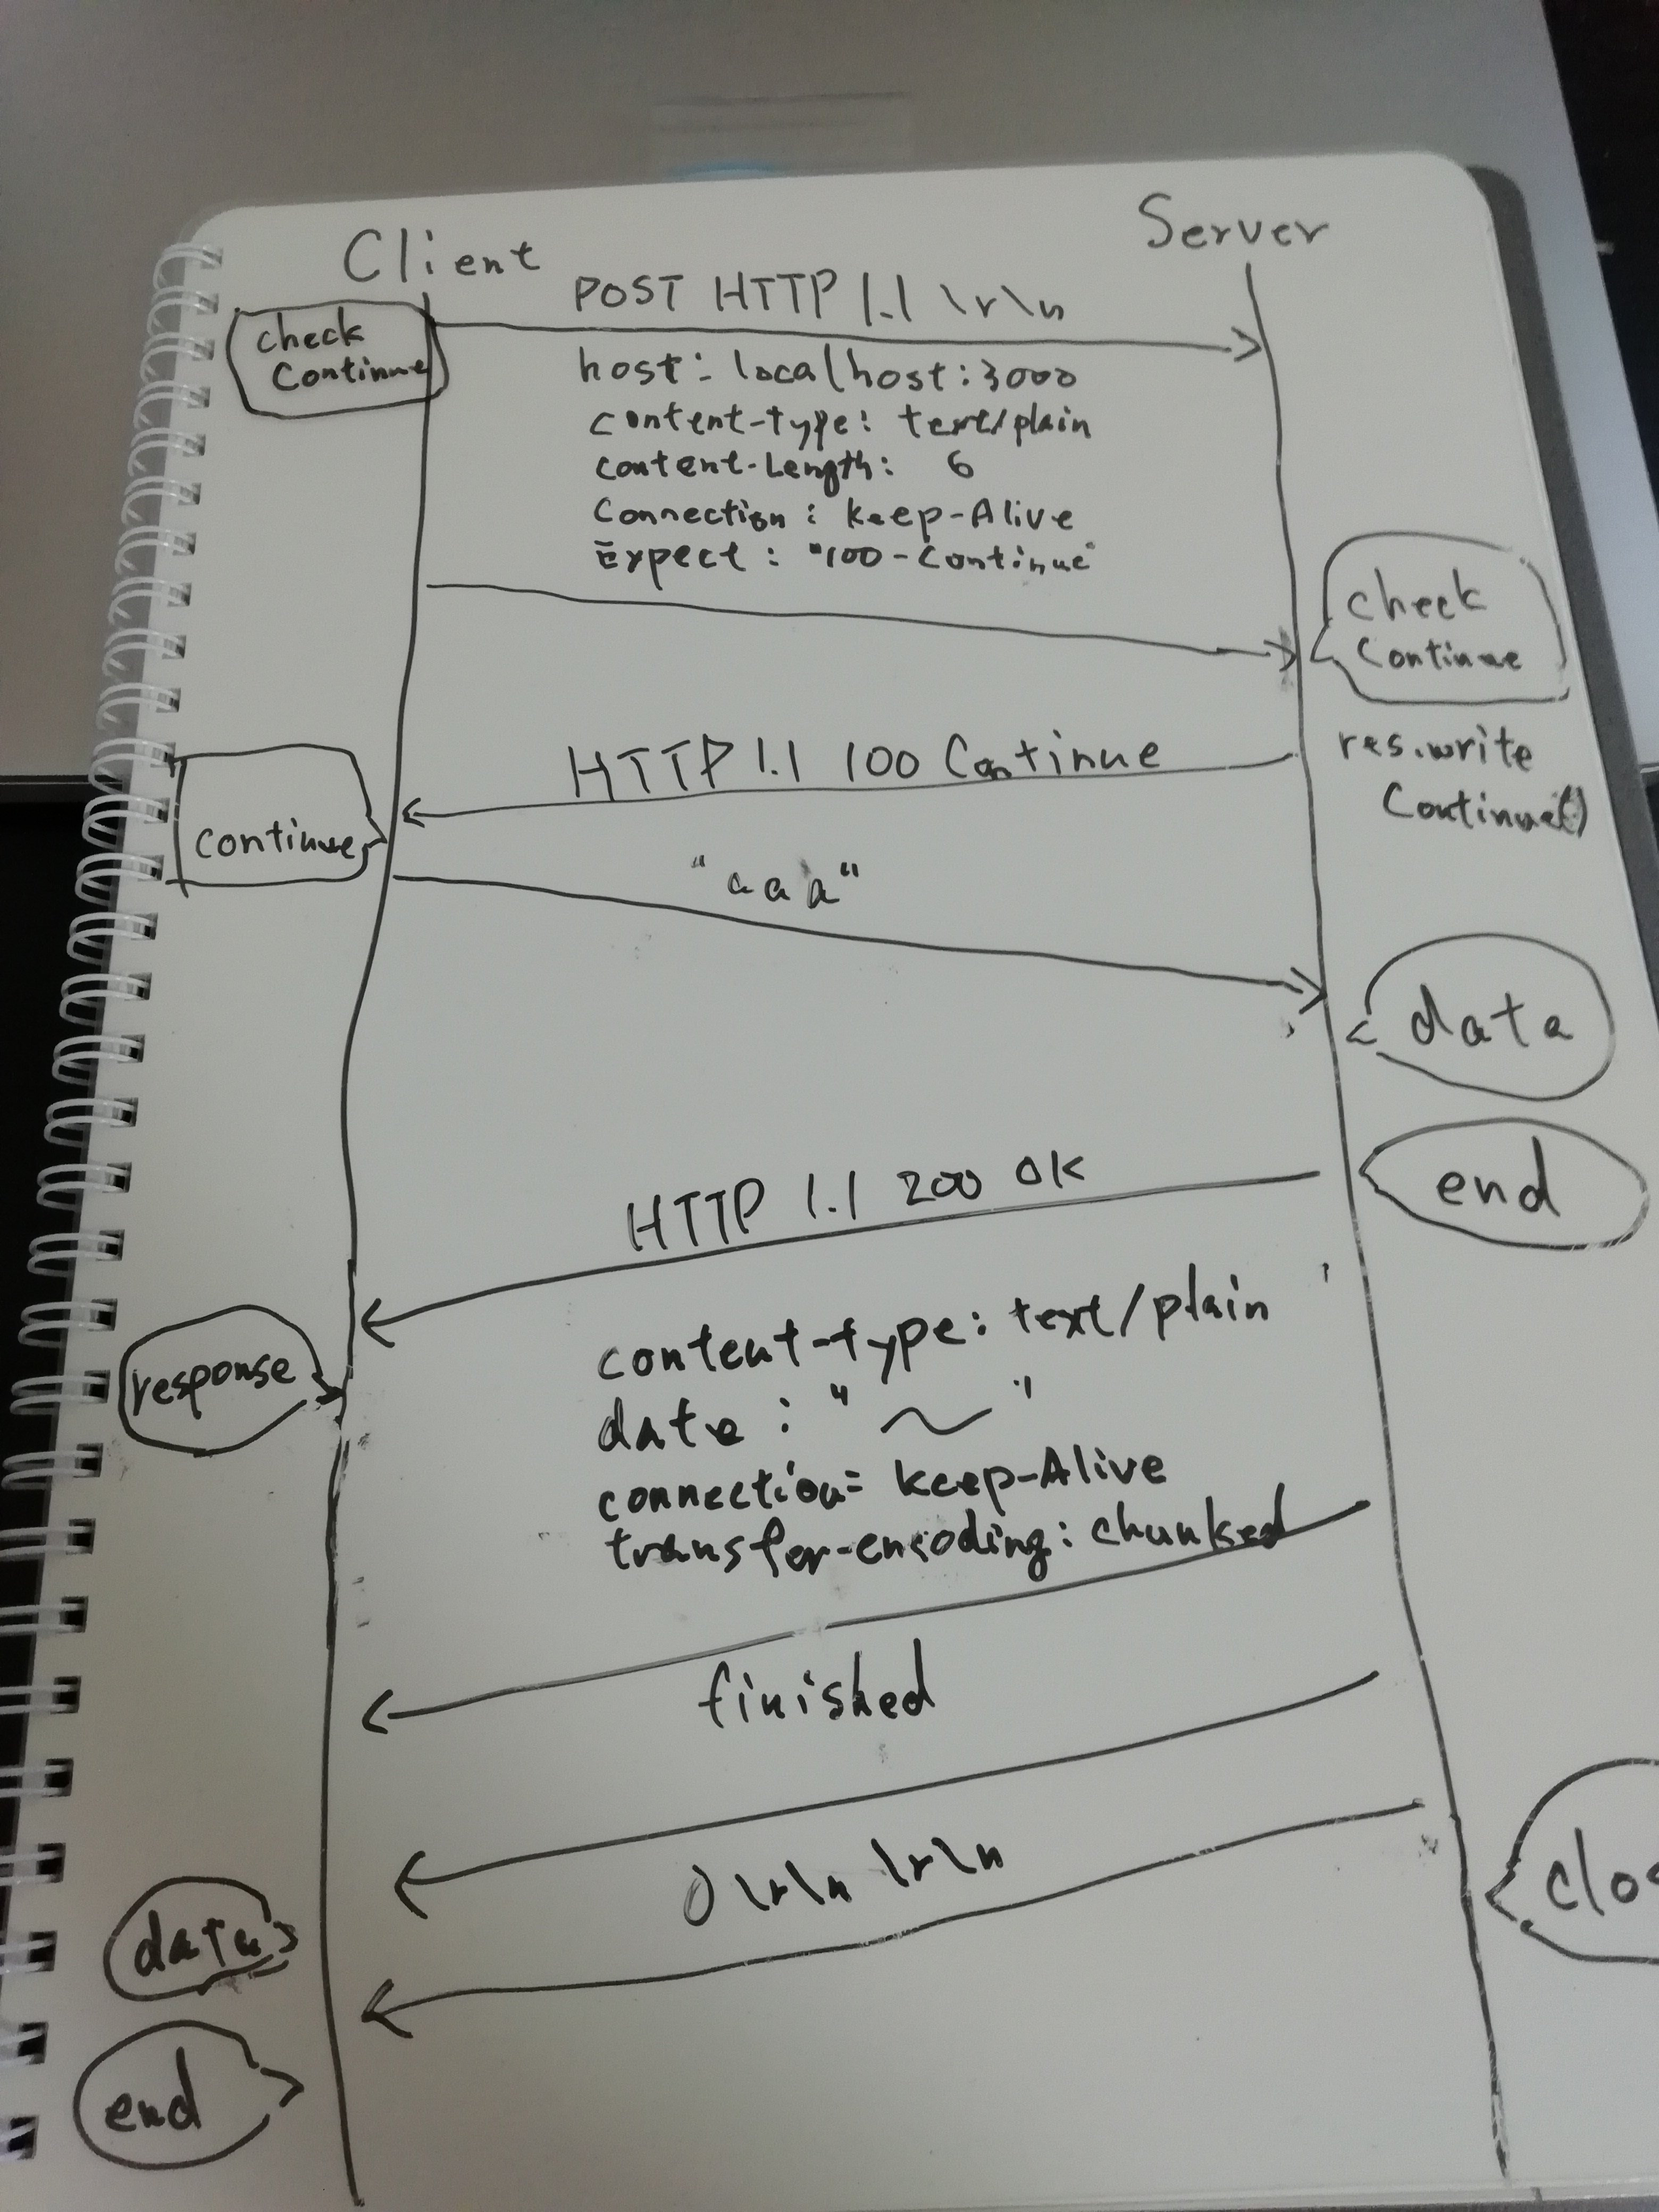 Client
Server
POST HTTP 1.1 \r\n
check
Continue
host: localhost:3000
content-type: text/plain
content-Length: 6
Connection: keep-Alive
Expect: "100-Continue"
check
Continue
HTTP 1.1 100 Continue
res.write
Continue()
continue
"aaa"
data
HTTP 1.1 200 OK
end
content-type: text/plain
response
date: "~"
connection= keep-Alive
transfer-encoding: chunksed
finished
0\r\n\r\n
clos
data
end